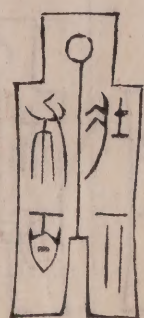 壯布
七百